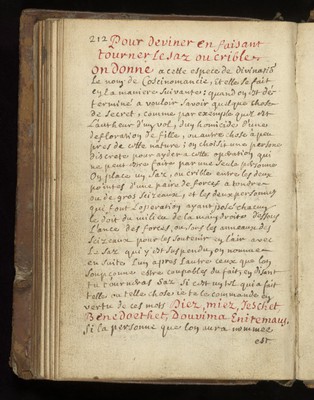 212
Pour deviner en faisant
tourner le saz ou crible:
on donne a cette espece de Divinatiõ
le nom de Coscinomancie, et elle se fait
en la maniere suivante: quand on est dé-
terminé a vouloir savoir quelque chose
de secret, comme par exemple quel est
l'autheur d'un vol, d'un homicide, d'une
defloration de fille, ou autre chose a peu
pres de cette nature; on choisit une personne
discrete pour ayder a cette operation qui
ne peut être faite par une seule personne
On place un saz, ou crible entre les deux
pointes d'une paire de forces a tondre
ou de gros cizeaux, et les deux personnes
qui font l'operation ayant posé chacun
le doit du milieu de la main droite dessous
l'ance des forces, ou sous les anneaux des
cizeaux pour les soutenir en l'air avec
le saz qui y est suspendu, on nomme
en suite l'un apres l'autre ceux que l'on
soupçonne estre coupables du fait, en disant
tu tourneras saz si c'est un tel qui a fait
telle ou telle chose: je te le commande en
vertu de ces mots Diez, miez, Jeschet,
Benedoethet, Douvima Enitemaus,
si la personne que l'on aura nommée
est